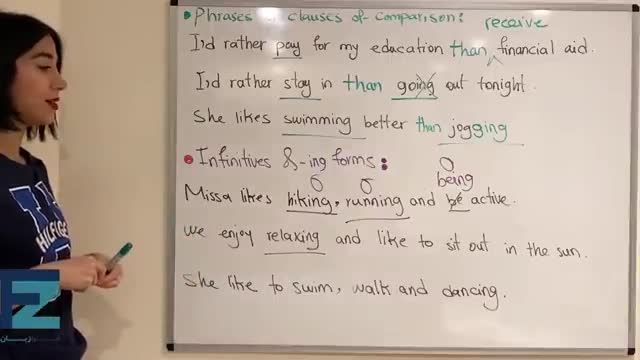 • Phrases or clauses of comparison: receive
I'd rather pay for my education than financial aid.
I'd rather stay in than going out tonight.
She likes swimming better than jogging
• Infinitives & -ing forms:
being
Missa likes hiking, running and be active.
we enjoy relaxing and like to sit out in the sun.
She like to swim, walk and dancing.
HILFIGER
EZ